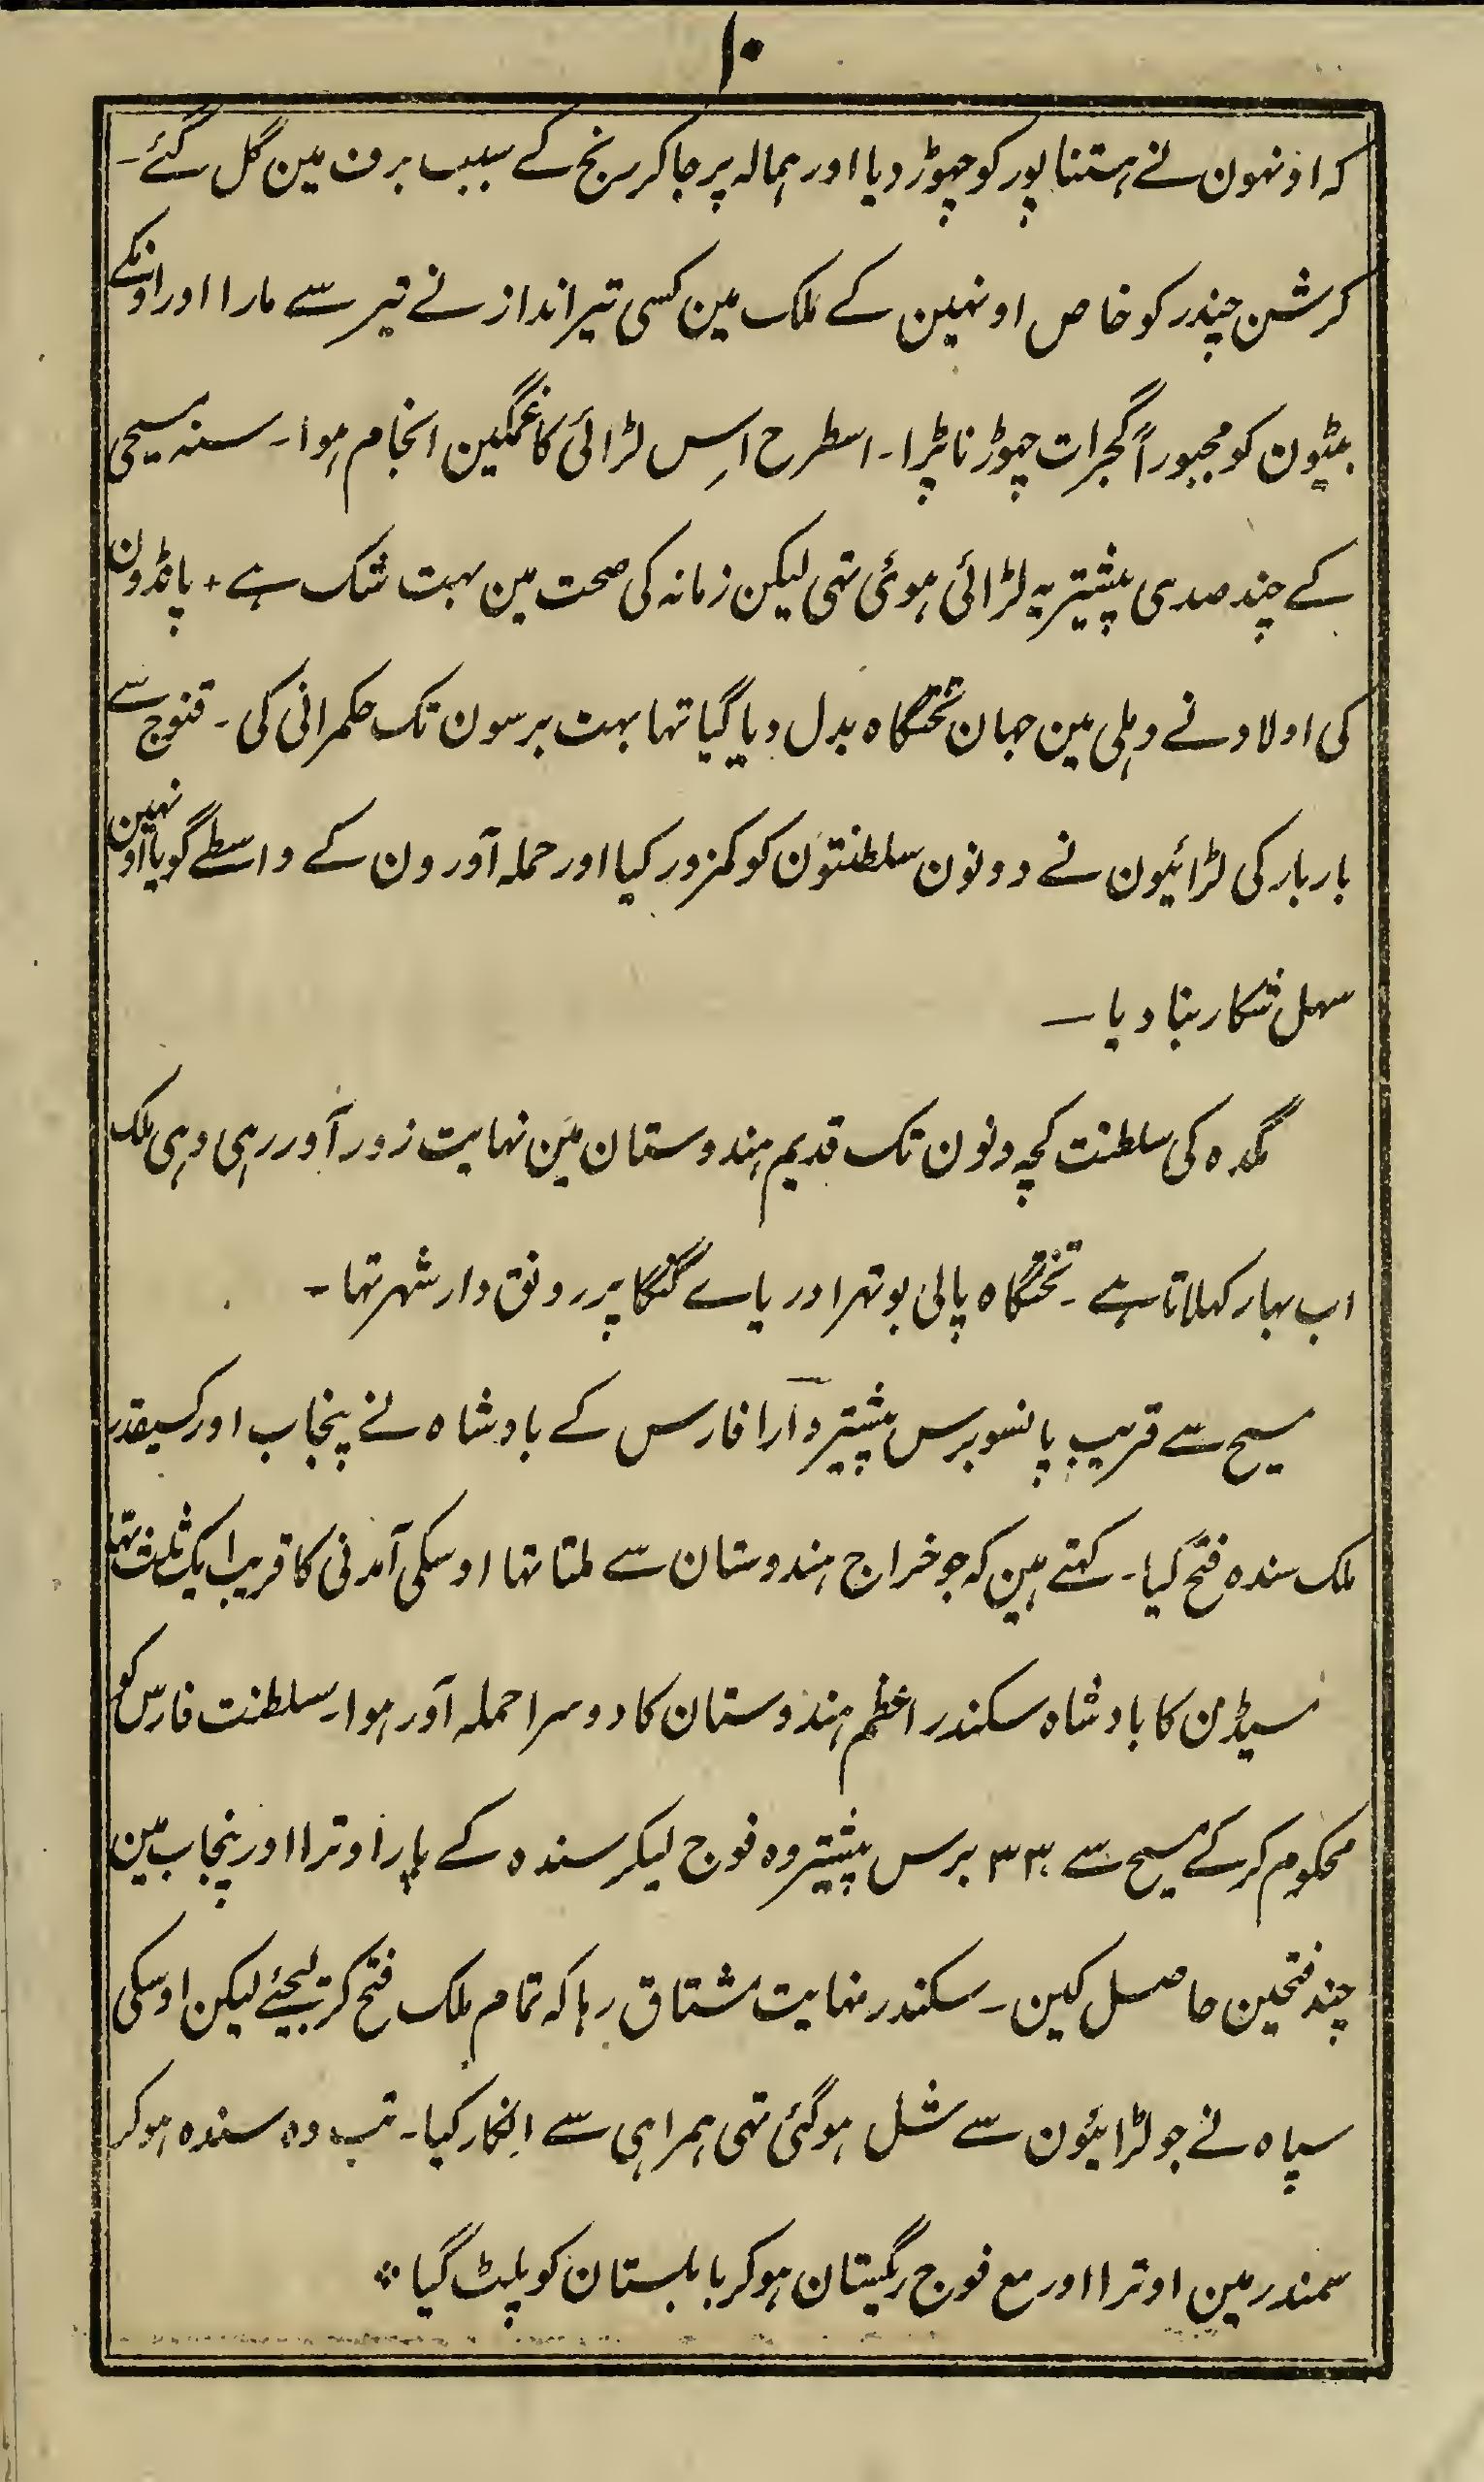 ۱۰
کہ اونہون نے ہستناپور کو چہوڑ دیا اور ہمالہ پر جا کر رنج کے سبب برف مین گل گئے۔
کرشن چندر کو خاص اونہین کے ملک مین کسی تیر انداز نے تیر سے مارا اور اونکے
بیٹیون کو مجبوراً گجرات چہوڑنا پڑا۔ اسطرح اِس لڑائی کا غمگین انجام ہوا۔ سنہ مسیحی
کے چند صدی پیشتر یہ لڑائی ہوئی تہی لیکن زمانہ کی صحت مین بہت شک ہے + پانڈون
کی اولاد نے دہلی مین جہان تختگاہ بدل دیا گیا تہا بہت برسون تک حکمرانی کی۔ قنوج سے
بار بار کی لڑائیون نے دونون سلطنتون کو کمزور کیا اور حملہ آورون کے واسطے گویا اونہین
سہل شکار بنا دیا ۔
مگدہ کی سلطنت کچہ دنون تک قدیم ہندوستان مین نہایت زور آور رہی وہی ملک
اب بہار کہلاتا ہے۔ تختگاہ پالی بوتہرا دریاے گنگا پر رونق دار شہر تہا۔
مسیح سے قریب پانسو برس پیشتر دآرا فارس کے بادشاہ نے پنجاب اور کسیقدر
ملک سندہ فتح کیا۔ کہتے ہین کہ جو خراج ہندوستان سے ملتا تہا اوسکی آمدنی کا قریب ایک ثلث تہا
سیڈمن کا بادشاہ سکندر اعظم ہندوستان کا دوسرا حملہ آور ہوا۔ سلطنت فارس کو
محکوم کر کے مسیح سے ۳۳۰ برس پیشتر وہ فوج لیکر سندہ کے پار اوترا اور پنجاب مین
چند فتحین حاصل کین۔ سکندر نہایت مشتاق رہا کہ تمام ملک فتح کر لیجئے لیکن اوسکی
سپاہ نے جو لڑائیون سے شل ہو گئی تہی ہمراہی سے انکار کیا۔ تب وہ سندہ ہو کر
سمندر مین اوترا اور مع فوج ریگستان ہو کر بابلستان کو پلٹ گیا ۞